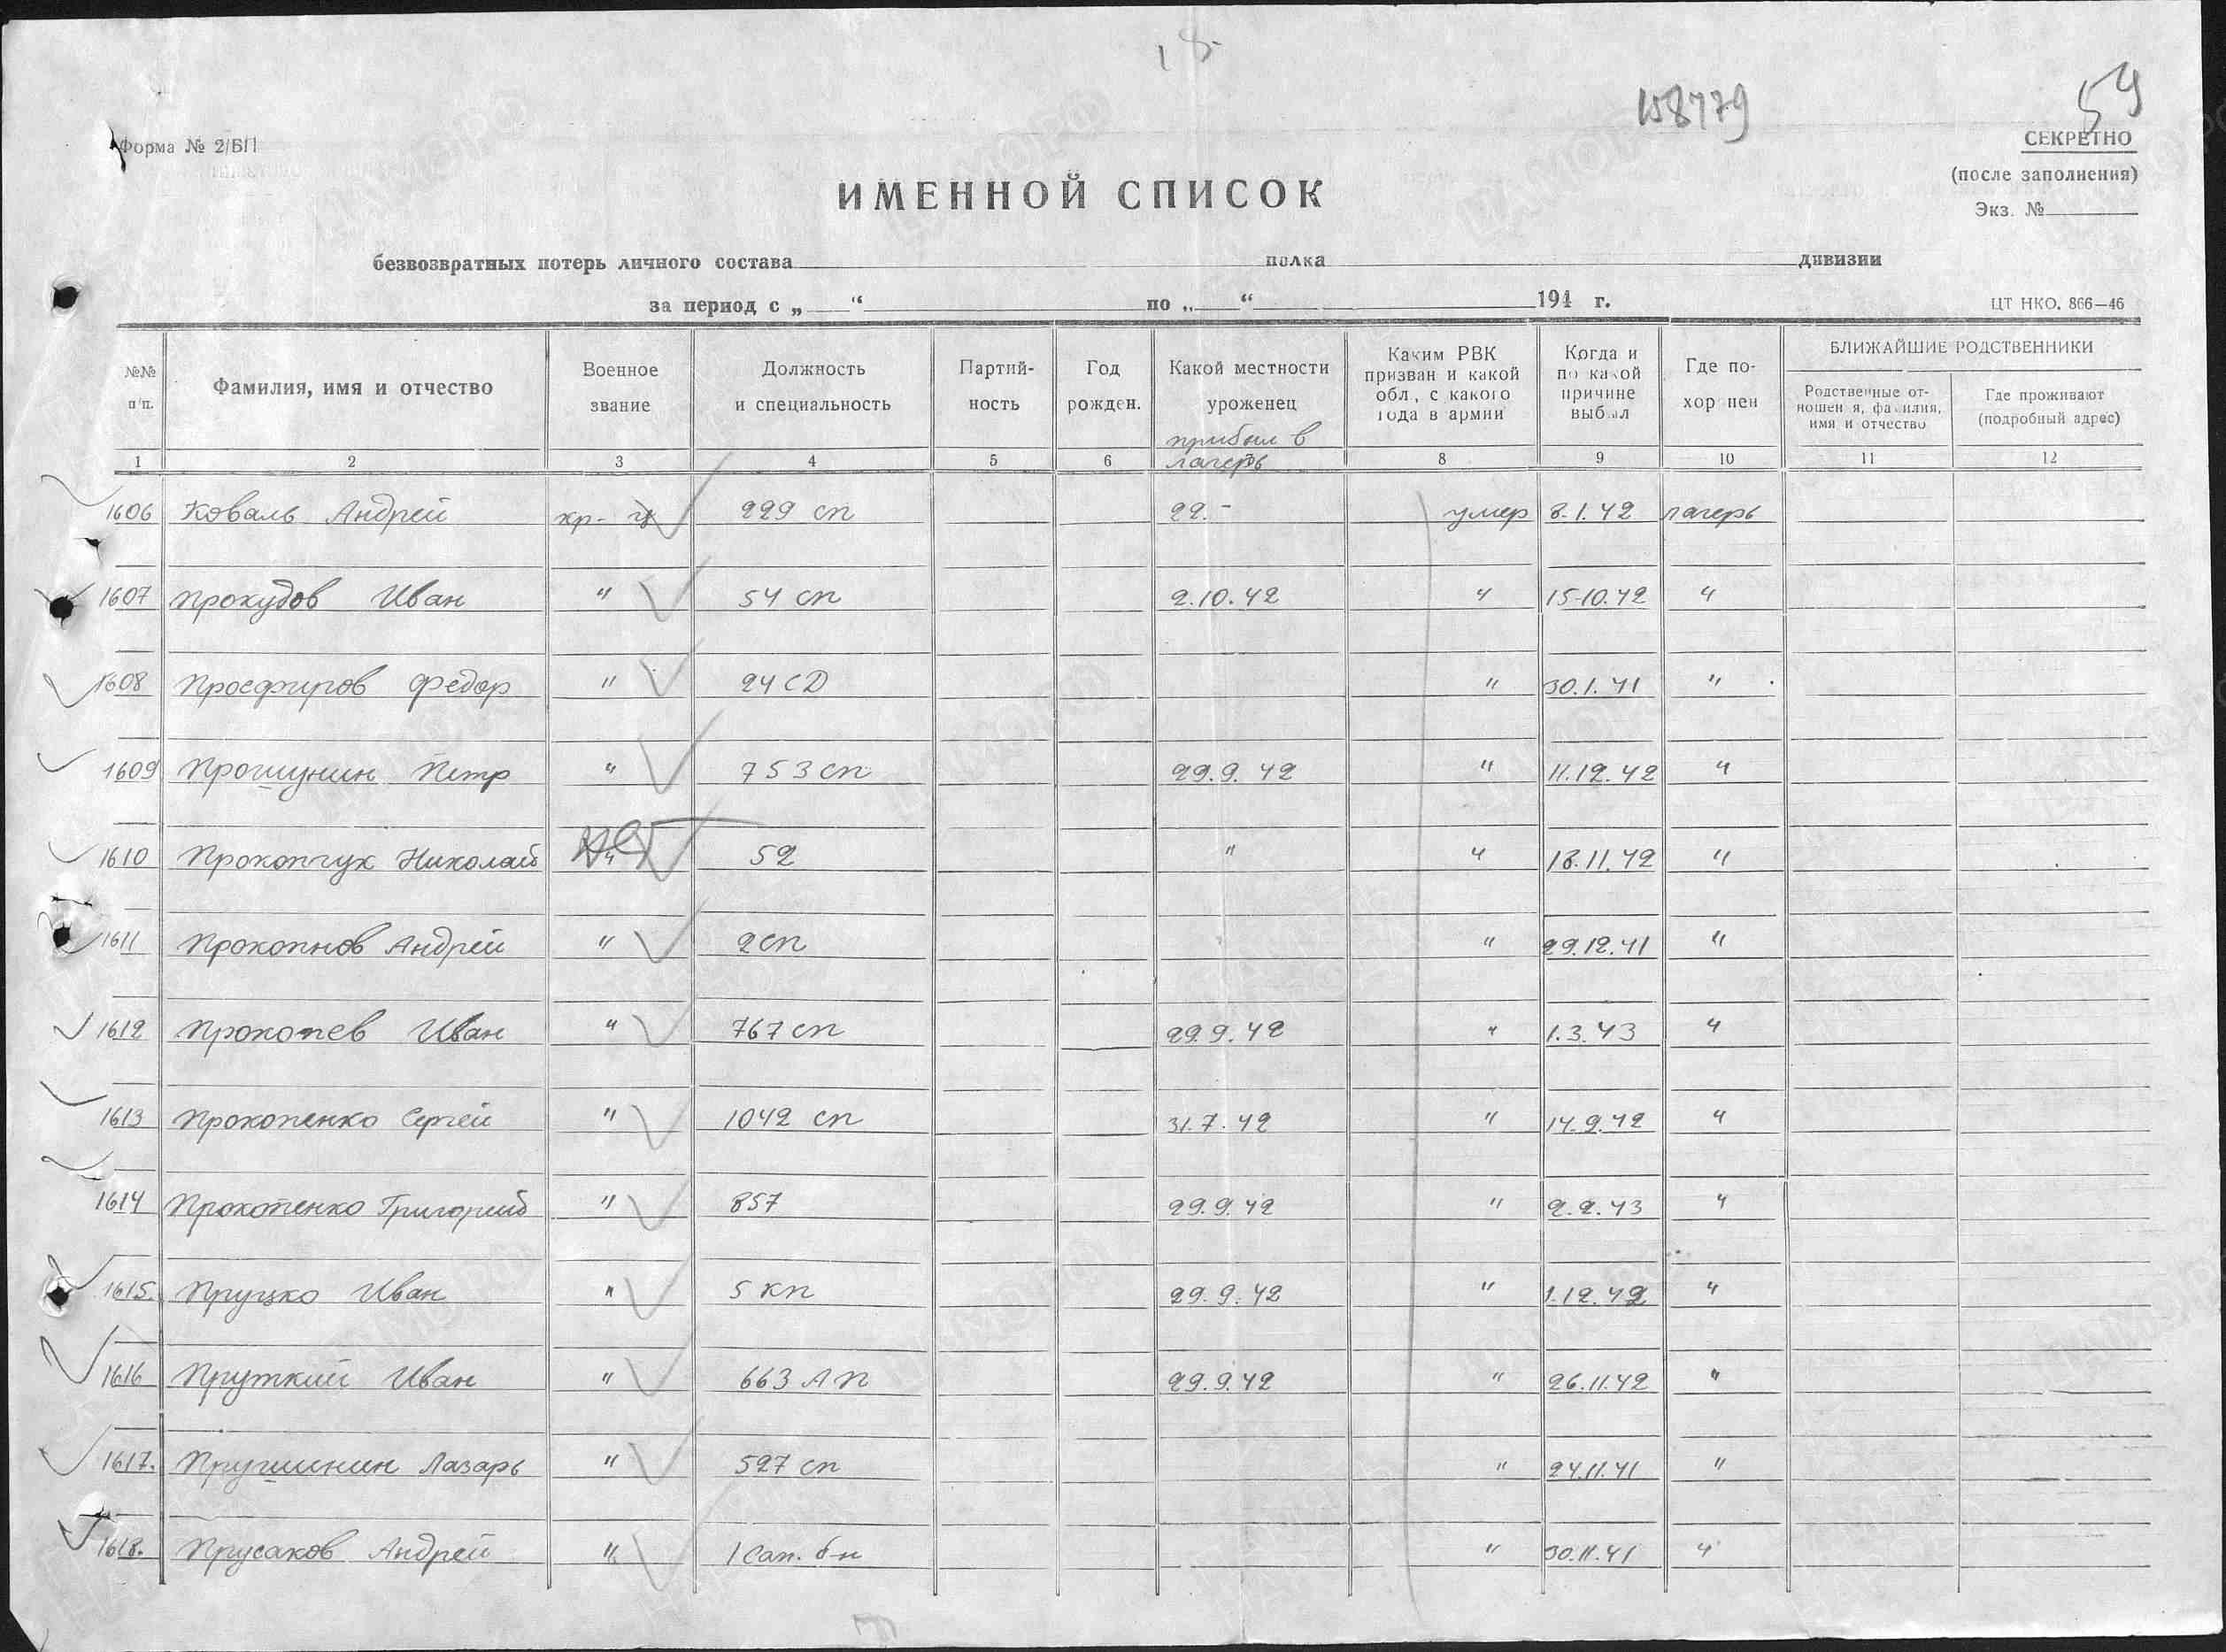 18.
158779
59
Форма № 2/БП
СЕКРЕТНО
(после заполнения)
Экз. №
ИМЕННОЙ СПИСОК
безвозвратных потерь личного состава полка дивизии
за период с „ “ по „ “ 194 г.
ЦТ НКО. 866—46
№№ п/п.
Фамилия, имя и отчество
Военное звание
Должность и специальность
Партийность
Год рожден.
Какой местности уроженец
прибыл в лагерь
Каким РВК призван и какой обл., с какого года в армии
Когда и по какой причине выбыл
Где похоронен
БЛИЖАЙШИЕ РОДСТВЕННИКИ
Родственные отношения, фамилия, имя и отчество
Где проживают (подробный адрес)
1 2 3 4 5 6 7 8 9 10 11 12
1606 Коваль Андрей кр-ц 229 сп 22.- умер 8.1.42 лагерь
1607 Прокудов Иван " 54 сп 2.10.42 " 15.10.42 "
1608 Просфиров Федор " 24 СД " 30.1.41 "
1609 Прошунин Петр " 753 сп 29.9.42 " 11.12.42 "
1610 Прокопчук Николай " 52 " " 18.11.42 "
1611 Прокопнов Андрей " 2 сп " 29.12.41 "
1612 Прокопев Иван " 767 сп 29.9.42 " 1.3.43 "
1613 Прокопенко Сергей " 1042 сп 31.7.42 " 14.9.42 "
1614 Прокопенко Григорий " 857 29.9.42 " 2.2.43 "
1615. Пруцко Иван " 5 кп 29.9.42 " 1.12.42 "
1616 Пруткий Иван " 663 АП 29.9.42 " 26.11.42 "
1617. Прушинин Лазарь " 527 сп " 24.11.41 "
1618. Прусаков Андрей " 1 сап. б-н " 30.11.41 "